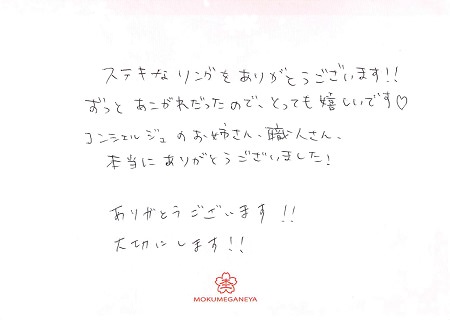 ステキなリングをありがとうございます!!
ずっとあこがれだったので、とっても嬉しいです♡
コンシェルジュのお姉さん、職人さん、
本当にありがとうございました!
ありがとうございます!!
大切にします!!
MOKUMEGANEYA